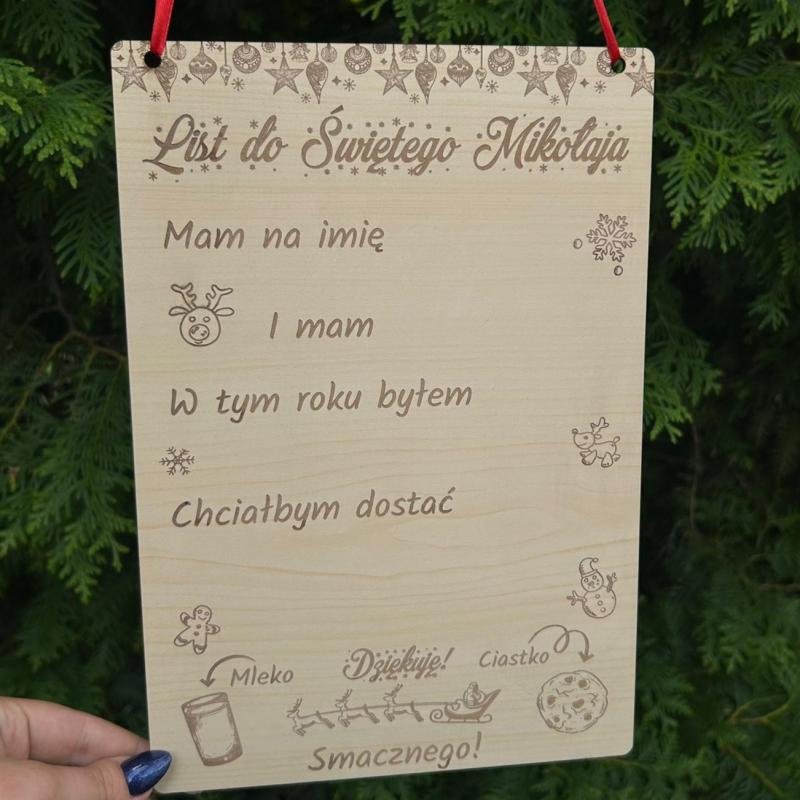 List do Świętego Mikołaja
Mam na imię
I mam
W tym roku byłem
Chciałbym dostać
Mleko
Dziękuję!
Ciastko
Smacznego!